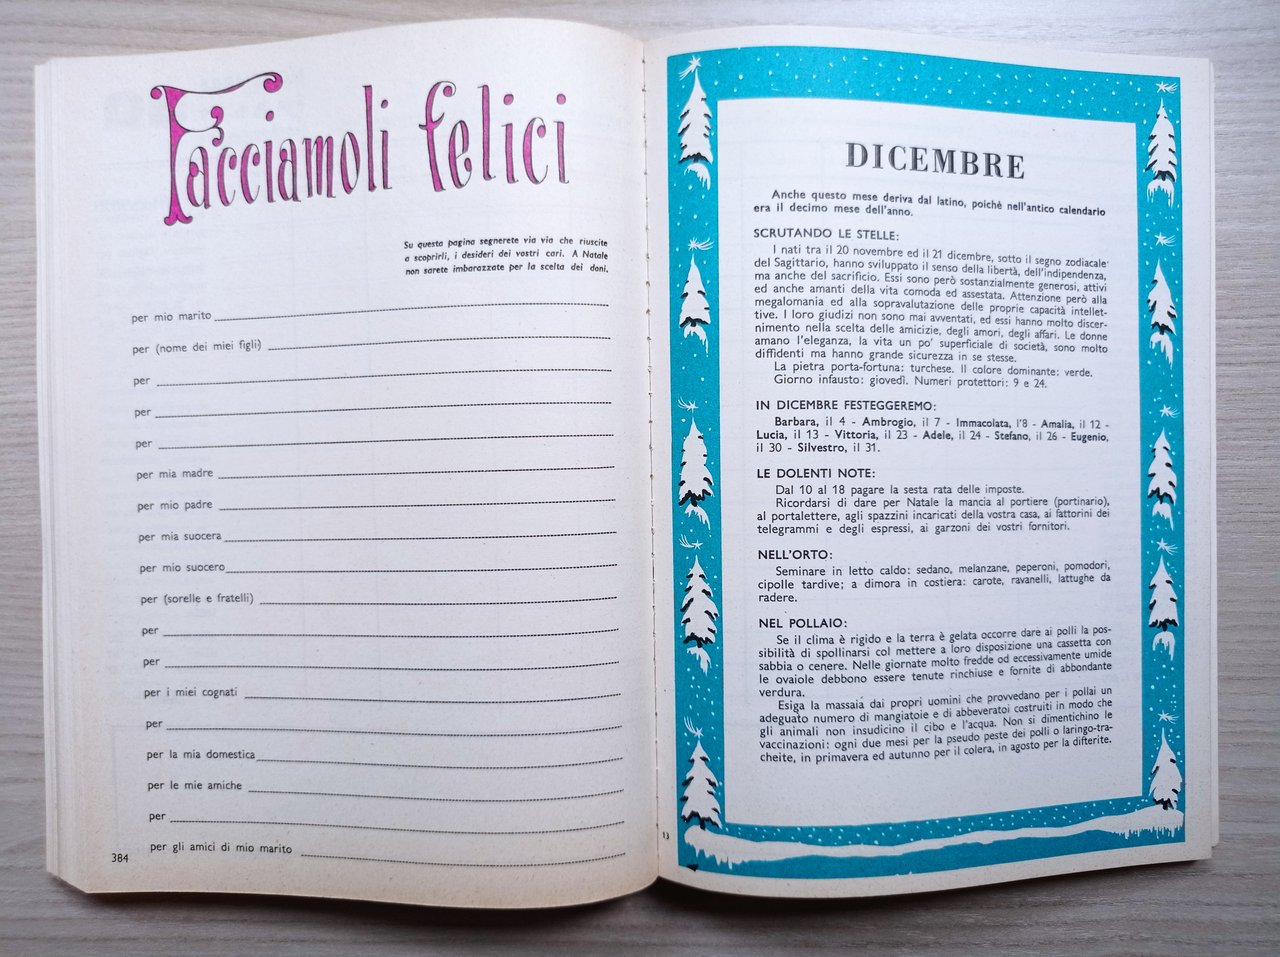 Facciamoli felici
Su questa pagina segnerete via via che riuscite
a scoprirli, i desideri dei vostri cari. A Natale
non sarete imbarazzate per la scelta dei doni.
per mio marito
per (nome dei miei figli)
per
per
per
per mia madre
per mio padre
per mia suocera
per mio suocero
per (sorelle e fratelli)
per
per
per i miei cognati
per
per la mia domestica
per le mie amiche
per
per gli amici di mio marito
384
DICEMBRE
Anche questo mese deriva dal latino, poichè nell'antico calendario
era il decimo mese dell'anno.
SCRUTANDO LE STELLE:
I nati tra il 20 novembre ed il 21 dicembre, sotto il segno zodiacale
del Sagittario, hanno sviluppato il senso della libertà, dell'indipendenza,
ma anche del sacrificio. Essi sono però sostanzialmente generosi, attivi
ed anche amanti della vita comoda ed assestata. Attenzione però alla
megalomania ed alla sopravalutazione delle proprie capacità intellet-
tive. I loro giudizi non sono mai avventati, ed essi hanno molto discer-
nimento nella scelta delle amicizie, degli amori, degli affari. Le donne
amano l'eleganza, la vita un po' superficiale di società, sono molto
diffidenti ma hanno grande sicurezza in se stesse.
La pietra porta-fortuna: turchese. Il colore dominante: verde.
Giorno infausto: giovedì. Numeri protettori: 9 e 24.
IN DICEMBRE FESTEGGEREMO:
Barbara, il 4 - Ambrogio, il 7 - Immacolata, l'8 - Amalia, il 12 -
Lucia, il 13 - Vittoria, il 23 - Adele, il 24 - Stefano, il 26 - Eugenio,
il 30 - Silvestro, il 31.
LE DOLENTI NOTE:
Dal 10 al 18 pagare la sesta rata delle imposte.
Ricordarsi di dare per Natale la mancia al portiere (portinario),
al portalettere, agli spazzini incaricati della vostra casa, ai fattorini dei
telegrammi e degli espressi, ai garzoni dei vostri fornitori.
NELL'ORTO:
Seminare in letto caldo: sedano, melanzane, peperoni, pomodori,
cipolle tardive; a dimora in costiera: carote, ravanelli, lattughe da
radere.
NEL POLLAIO:
Se il clima è rigido e la terra è gelata occorre dare ai polli la pos-
sibilità di spollinarsi col mettere a loro disposizione una cassetta con
sabbia o cenere. Nelle giornate molto fredde od eccessivamente umide
le ovaiole debbono essere tenute rinchiuse e fornite di abbondante
verdura.
Esiga la massaia dai propri uomini che provvedano per i pollai un
adeguato numero di mangiatoie e di abbeveratoi costruiti in modo che
gli animali non insudicino il cibo e l'acqua. Non si dimentichino le
vaccinazioni: ogni due mesi per la pseudo peste dei polli o laringo-tra-
cheite, in primavera ed autunno per il colera, in agosto per la difterite.
13